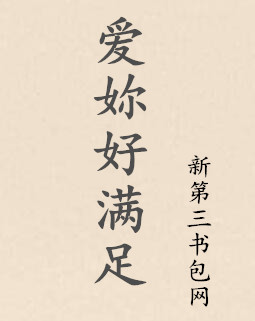 爱妳好满足
新第三书包网